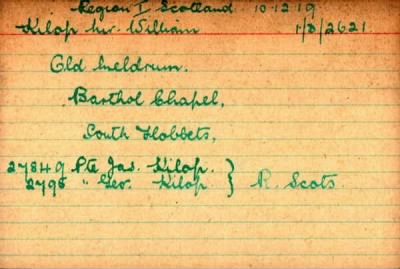 Region I Scotland 10.12.19
Kilop Mr. William 1/8/2621
Old Meldrum.
Barthol Chapel,
South Hobbets,
27849 Pte Jas. Kilop. } R. Scots.
2795 " Geo. Kilop. }